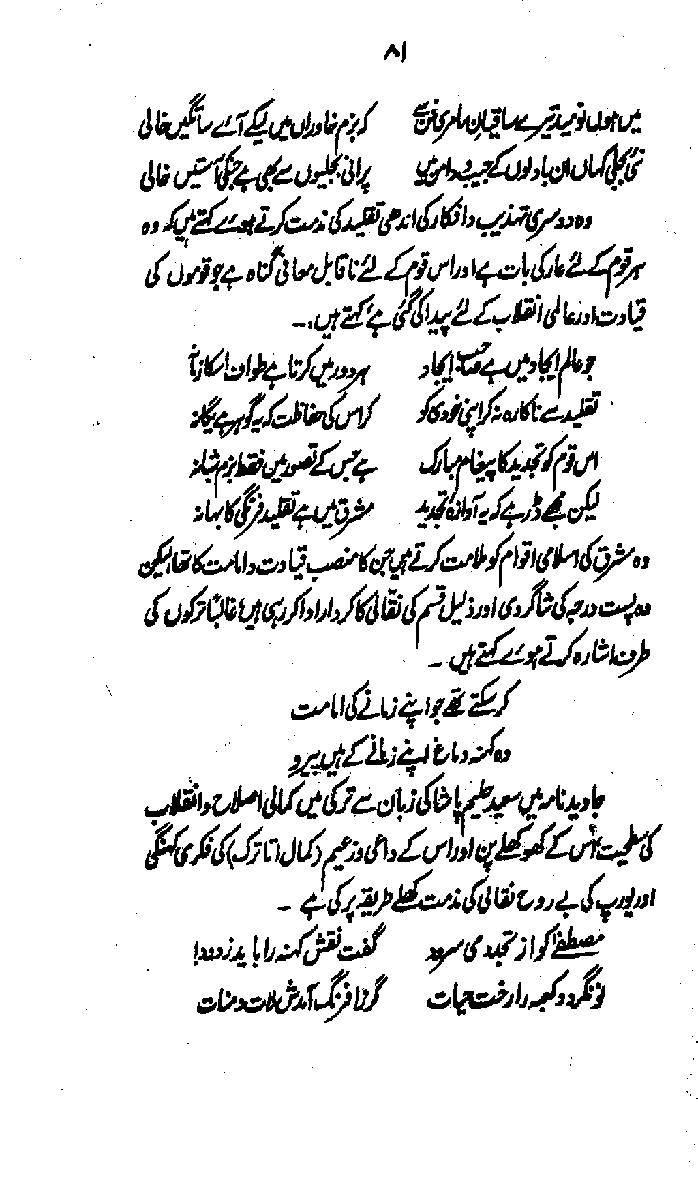 ۸۱
میں ہوں نومید تیرے ساقیانِ سامری فن سے کہ بزم خاوراں میں لیکے آئے ساتگیں خالی
نئی بجلی کہاں ان بادلوں کے جیب و دامن میں پرانی بجلیوں سے بھی ہے جنکی آستیں خالی
وہ دوسری تہذیب و افکار کی اندھی تقلید کی مذمت کرتے ہوئے کہتے ہیں کہ وہ
ہر قوم کے لئے عار کی بات ہے اور اس قوم کے لئے ناقابل معافی گناہ ہے جو قوموں کی
قیادت اور عالمی انقلاب کے لئے پیدا کی گئی ہے کہتے ہیں:۔
جو عالم ایجاد میں ہے صاحب ایجاد ہر دور میں کرتا ہے طواف اسکا زمانہ
تقلید سے ناکارہ نہ کر اپنی خودی کو کر اس کی حفاظت کہ یہ گوہر ہے یگانہ
اس قوم کو تجدید کا پیغام مبارک ہے جس کے تصور میں فقط بزم شبانہ
لیکن مجھے ڈر ہے کہ یہ آوازۂ تجدید مشرق میں ہے تقلید فرنگی کا بہانہ
وہ مشرق کی اسلامی اقوام کو ملامت کرتے ہیں جن کا منصب قیادت و امامت کا تھا لیکن
وہ پست درجہ کی شاگردی اور ذلیل قسم کی نقالی کا کردار ادا کر رہی ہیں، غالباً ترکوں کی
طرف اشارہ کرتے ہوئے کہتے ہیں ۔
کر سکتے تھے جو اپنے زمانے کی امامت
وہ کہنہ دماغ اپنے زمانے کے ہیں پیرو
جاوید نامہ میں سعید حلیم پاشا کی زبان سے ترکی میں کمالی اصلاح و انقلاب
کی سطحیت، اس کے کھوکھلے پن اور اس کے داعی و زعیم (کمال اتاترک) کی فکری کہنگی
اور یورپ کی بے روح نقالی کی مذمت کھلے طریقہ پر کی ہے ۔
مصطفےٰ کو از تجدد می سرود گفت نقش کہنہ را باید زدود
نو نگردد کعبہ را رخت حیات گر ز افرنگ آیدش لات و منات